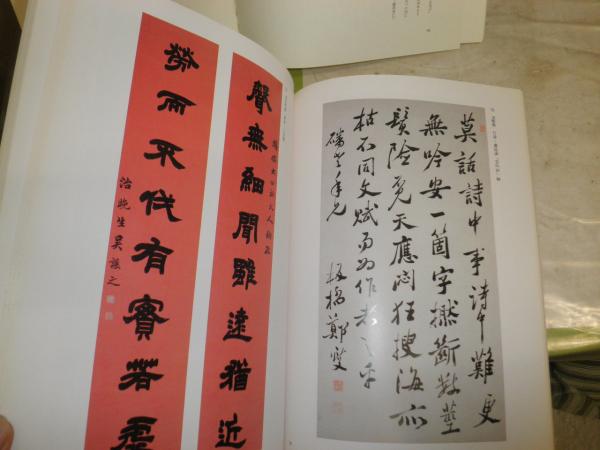 莫話詩中事詩中難更
無吟安一箇字撚斷數莖
鬚險覓天應悶狂搜海亦
枯不同文賦易為作者之乎
年兄
板橋鄭燮
聲無細聞雖遠猶近
勞而不伐有實若虛
治晚生吳讓之